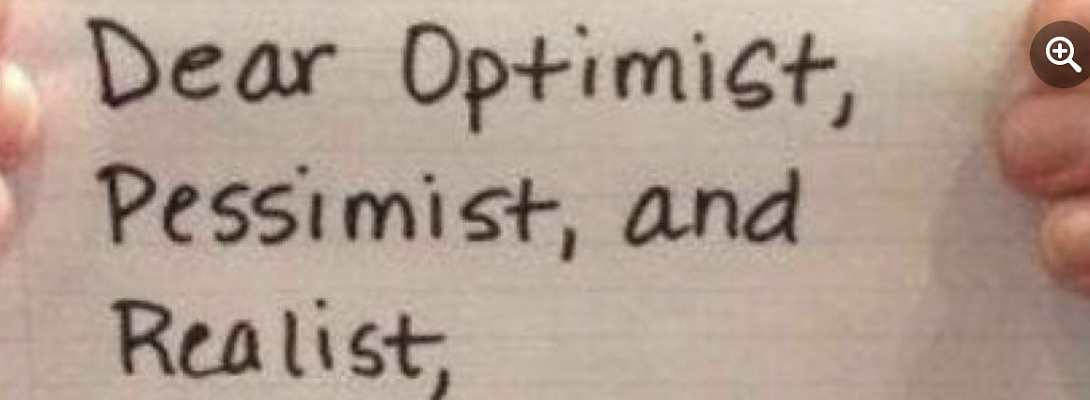 Dear Optimist,
Pessimist, and
Realist,